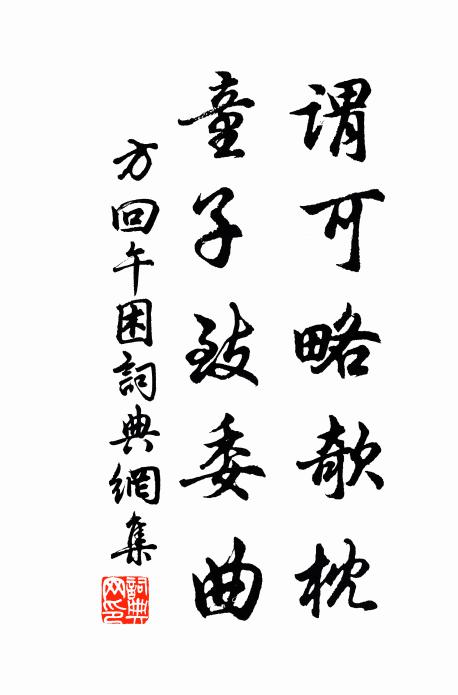 謂可略欹枕
童子致委曲
方回午困詞典網集
詞典網印